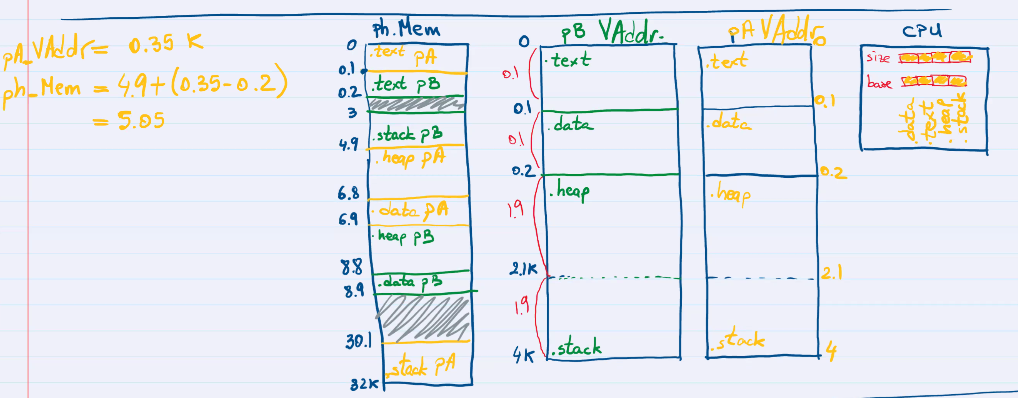 pA_VAddr = 0.35 K
ph_Mem = 4.9+(0.35-0.2)
= 5.05
ph.Mem
0
.text pA
0.1
.text pB
0.2
3
.stack pB
4.9
.heap pA
6.8
.data pA
6.9
.heap pB
8.8
.data pB
8.9
30.1
.stack pA
32K
pB VAddr.
0
.text
0.1
0.1
.data
0.1
0.2
.heap
1.9
2.1K
1.9
.stack
4K
pA VAddr.
0
.text
0.1
.data
0.2
.heap
2.1
.stack
4
CPU
size
base
.data
.text
heap
.stack